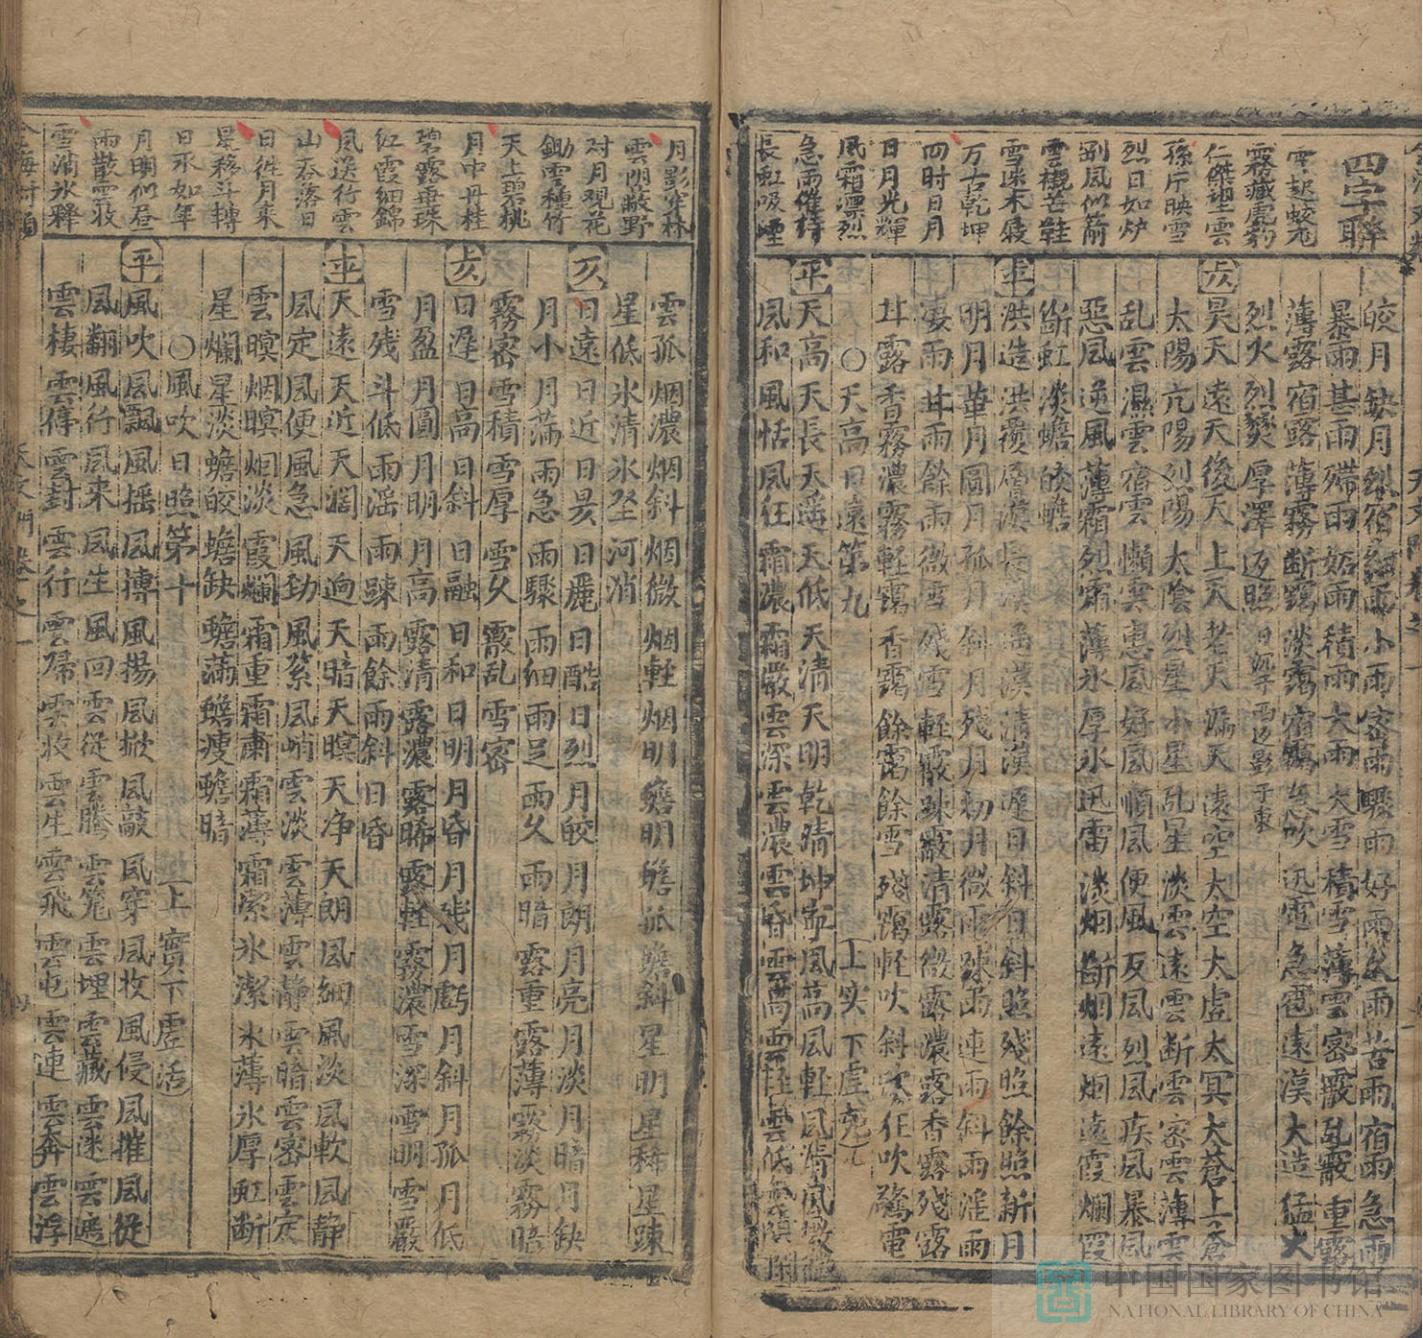 四字聯
雲起蛟龙
霧藏虎豹
仁傑望雲
孫斤映雪
烈日如炉
剐凨似箭
雲襯芒鞋
雪迷禾簑
万古乾坤
四时日月
日月光輝
凨霜凛烈
急雨催詩
長虹吸煙
皎月 缺月 小雨 密雨 驟雨 好雨 久雨 苦雨 宿雨 急雨
暴雨 甚雨 殢雨 妬雨 積雨 大雨 大雪 積雪 薄雲 密霰 乱霰 重露
薄露 宿露 薄霧 断靄 淡靄 宿靄 迅電 急雹 遠漠 大造 猛火
烈火 烈燹 厚澤 返照 日斜于西返影于東
昊天 遠天 後天 上天 老天 漏天 遠空 太空 太虚 太冥 太蒼 上蒼
太陽 亢陽 烈陽 太陰 烈星 小星 乱星 淡雲 遠雲 断雲 密雲 薄雲
乱雲 濕雲 宿雲 懶雲 惠凨 好凨 順凨 便風 反凨 烈凨 疾凨 暴凨
惡凨 逆風 薄霜 烈霜 薄氷 厚氷 迅雷 淡烟 断烟 遠烟 遠霞 爛霞
断虹 淡蟾 皎蟾
平 洪造 洪覆 層漠 長漠 遥漠 清漠 遲日 斜日 斜照 残照 餘照 新月
明月 華月 圓月 孤月 斜月 残月 初月 微雨 踈雨 連雨 斜雨 淫雨
凄雨 甘雨 餘雨 微雪 残雪 軽霰 踈霰 清露 微露 濃露 香露 残露
甘露 香霧 濃霧 軽靄 香靄 餘靄 餘雪 残靄 軽吹 斜吹 狂吹 驚電
〇天高日遠第九 上实下虚死
平 天高 天長 天遥 天低 天清 天明 乾晴 坤寧 風高 凨軽 凨清 凨微
凨和 風恬 凨狂 霜濃 霜嚴 雲深 雲濃 雲昏 雲高 雲軽 雲低
月影穿林
雲阴蔽野
对月观花
鋤雪種竹
天上碧桃
月中丹桂
碧露垂珠
红霞细錦
凨送行雲
山吞落日
日徃月来
星移斗轉
日永如年
月明似昼
雨散雲收
雪消氷釋
雲孤 烟濃 烟斜 烟微 烟軽 烟明 蟾明 蟾孤 蟾斜 星明 星稀 星踈
星低 氷清 氷坚 河消
日遠 日近 日昃 日麗 日酷 日烈 月皎 月朗 月亮 月淡 月暗 月缺
月小 月満 雨急 雨驟 雨细 雨足 雨久 雨暗 露重 露薄 霧淡 霧暗
霧密 雪積 雪厚 雪久 霰乱 雪密
日遲 日高 日斜 日融 日和 日明 月昏 月残 月虧 月斜 月孤 月低
月盈 月圓 月明 月高 露清 露濃 露晞 露軽 霧濃 雪深 雪明 雪嚴
雪残 斗低 雨滛 雨踈 雨餘 雨斜 日昏
天遠 天近 天濶 天迥 天暗 天暝 天净 天朗 凨细 風淡 凨軟 凨静
凨定 凨便 風急 風劲 風紧 凨峭 雲淡 雲薄 雲静 雲暗 雲密 雲定
雲暝 烟暝 烟淡 霞爛 霜重 霜肅 霜薄 霜紧 氷潔 氷薄 氷厚 虹断
星爛 星淡 蟾皎 蟾缺 蟾满 蟾瘦 蟾暗
〇風吹日照第十 上實下虚活
平 風吹 凨飄 風揺 凨摶 風揚 凨掀 凨敲 凨穿 凨收 風侵 凨摧 凨従
凨翻 風行 凨来 凨生 風回 雲従 雲騰 雲笼 雲埋 雲藏 雲迷 雲遮
雲棲 雲停 雲封 雲行 雲歸 雲收 雲生 雲飛 雲屯 雲連 雲奔 雲浮
中国国家图书馆
NATIONAL LIBRARY OF CHINA